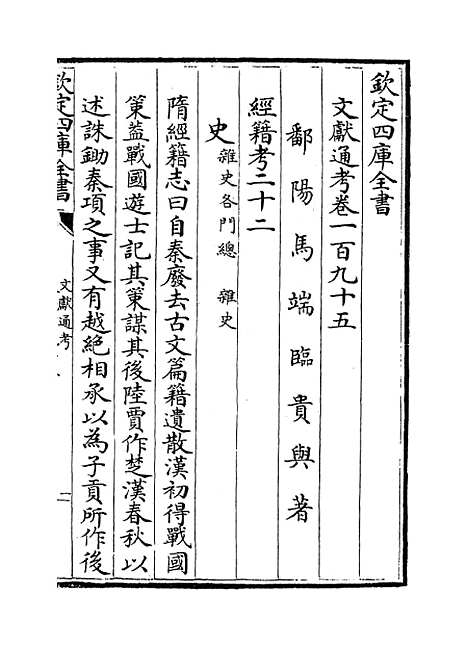 欽定四庫全書
文獻通考卷一百九十五
鄱陽馬端臨貴與著
經籍考二十二
史 雜史各門總 雜史
隋經籍志曰自秦廢去古文篇籍遺散漢初得戰國
策葢戰國遊士記其策謀其後陸賈作楚漢春秋以
述誅鋤秦項之事又有越絶相承以為子貢所作後
欽定四庫全書
文獻通考
一